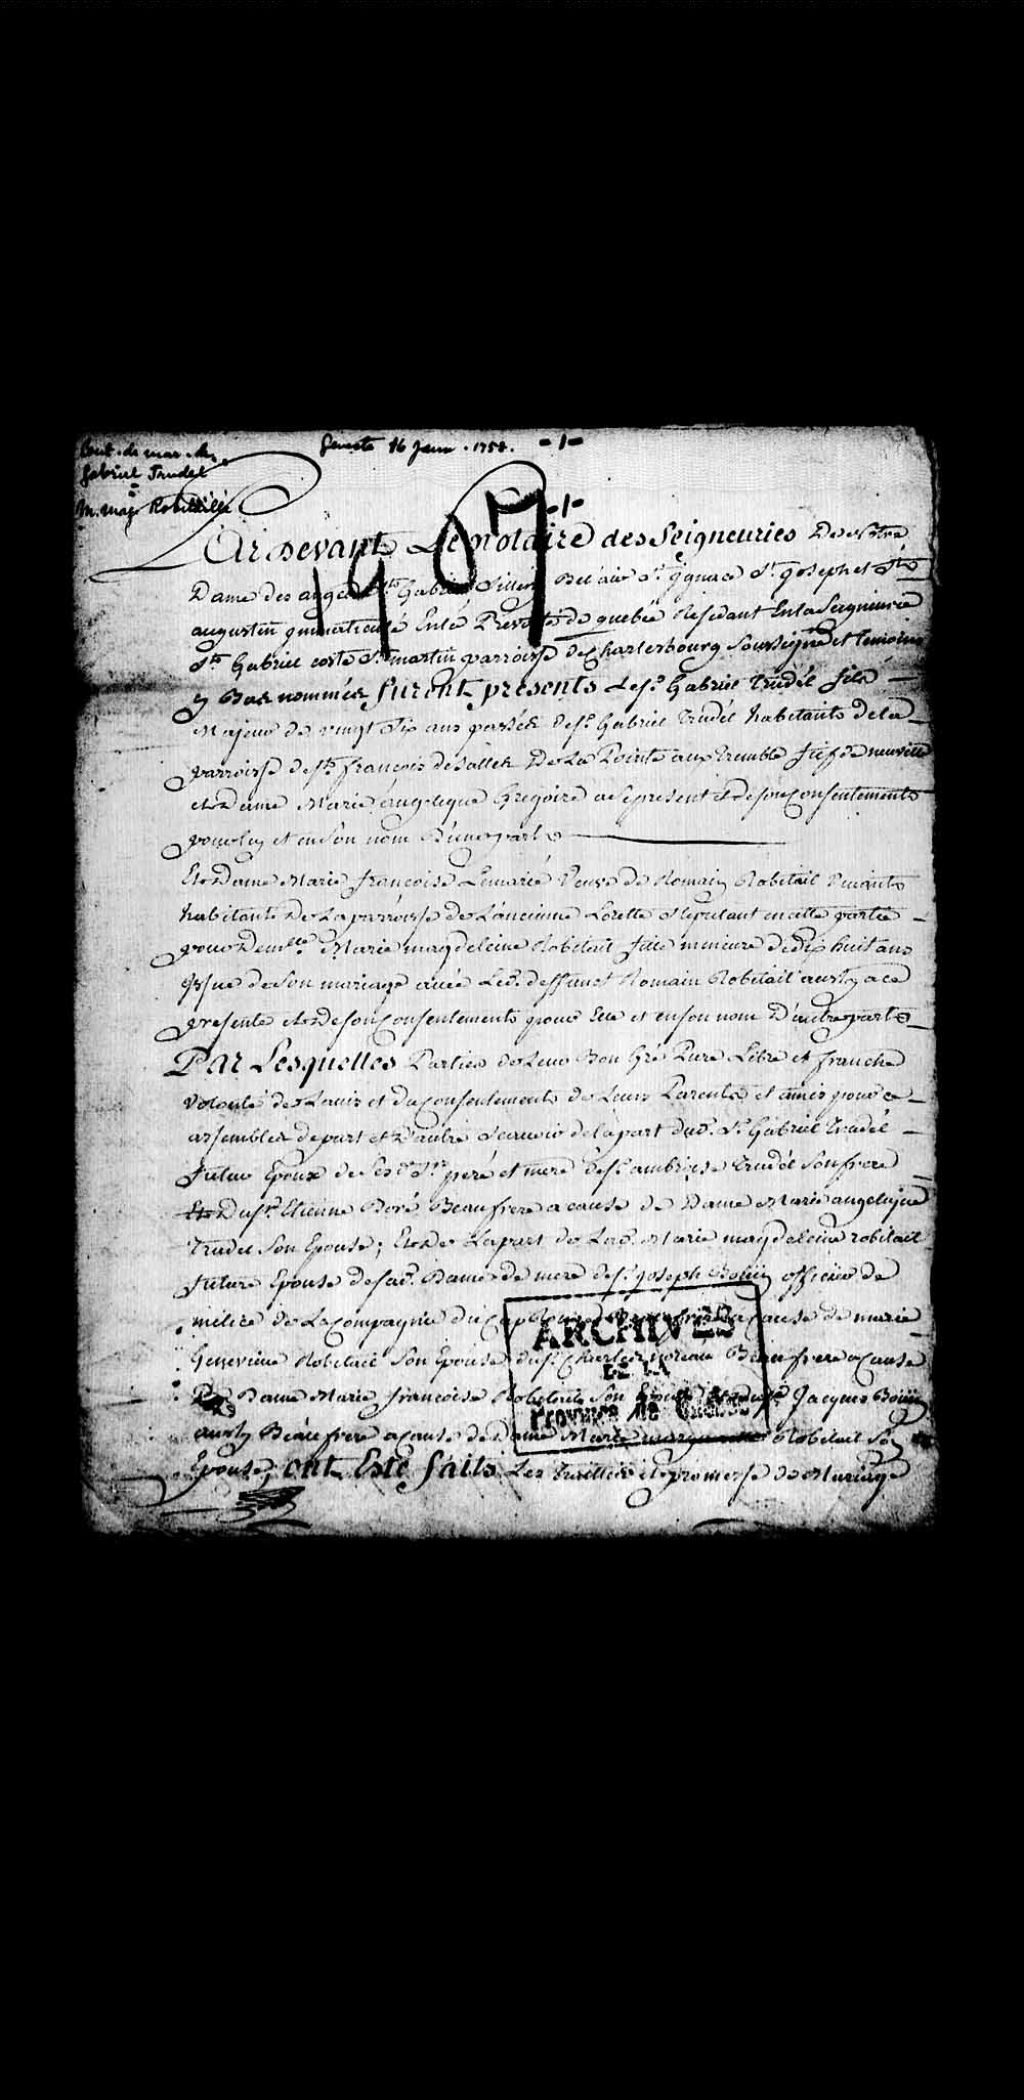 Cont. de mar. de
Gabriel Trudel
&
M. Mag. Robitaille
Geneste 16 Janv. 1758. -1-
-1-
1967
Pardevant Le Notaire des Seigneuries De Nôtre
Dame des anges St Gabriel Sillery Bel'air St ygnace St Joseph et St
augustin immatriculé En la Prevosté de quebec Residant En la Seigneurie
St Gabriel coste St martin parroisse de Charlesbourg Soussigné et Temoins
y Bas nommés furent presents Le Sr Gabriel Trudél fils
Majeur de vingt Six ans passés de Sr Gabriel Trudél habitants de la
parroisse de St françois de Salles De La Pointe aux Tremble fief de neuville
et Dame Marie angelique Gregoire a Se present et de Son Consentements
pour luy et en Son nom D'une parts
Et Dame Marie francoise Lemarié Veuve de Romain Robitail vivants
habitants De La parroisse de L'ancienne Lorette Stipulant en cette partie
pour Demlle Marie magdeleine Robitail fille mineure de dix huit ans
yssue de Son mariage avec Led. deffunct Romain Robitail aussy a ce
presente et De Son Consentements pour Elle et en Son nom D'autre parts
Par Lesquelles Parties de Leur Bon Gré Pure Libre et franche
volonté de L'avis et du Consentements de Leurs Parents et amis pour ce
assemblés de part et D'autre Scavoir de la part dud. Sr Gabriel Trudél
futur Epoux de Ses d. Srs peré et mere de Sr ambroise Trudél Son frere
Et Du Sr Etienne Doré Beaufrere a cause de Dame Marie angelique
Trudel Son Epouse; Et De La part de Lad. Marie magdeleine robitail
future Epouse de Sad. Dame de mere de Sr Joseph Boüin officier de
milice de La Compagnie du Cap Rouge Beaufrere a Cause de marie
Genevieve Robitail Son Epouse du Sr Charles moreau Beaufrere a Cause
De Dame Marie francoise Robitail Son Epouse Et du Sr Jacques Boüin
aussy Beaufrere a cause de Dame Marie marguerite Robitail Son
Epouse; ont Esté faits Les Traittés et promesse de Mariage
ARCHIVES
DE LA
Province de Québec